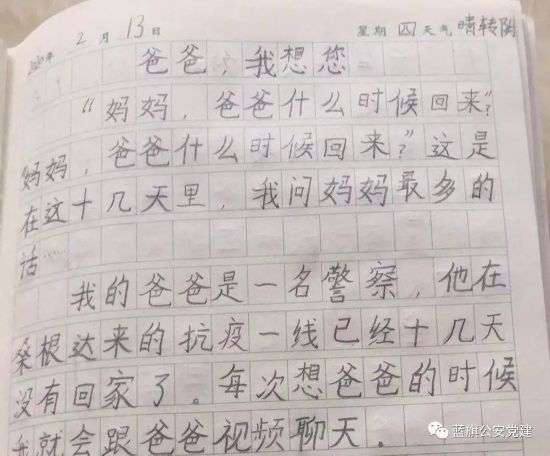 2020年 2月13日 星期四 天气晴转阴
爸爸，我想您
“妈妈，爸爸什么时候回来”？
“妈妈，爸爸什么时候回来？”这是
在这十几天里，我问妈妈最多的
话……
我的爸爸是一名警察，他在
桑根达来的抗疫一线已经十几天
没有回家了。每次想爸爸的时候
我就会跟爸爸视频聊天。
蓝旗公安党建